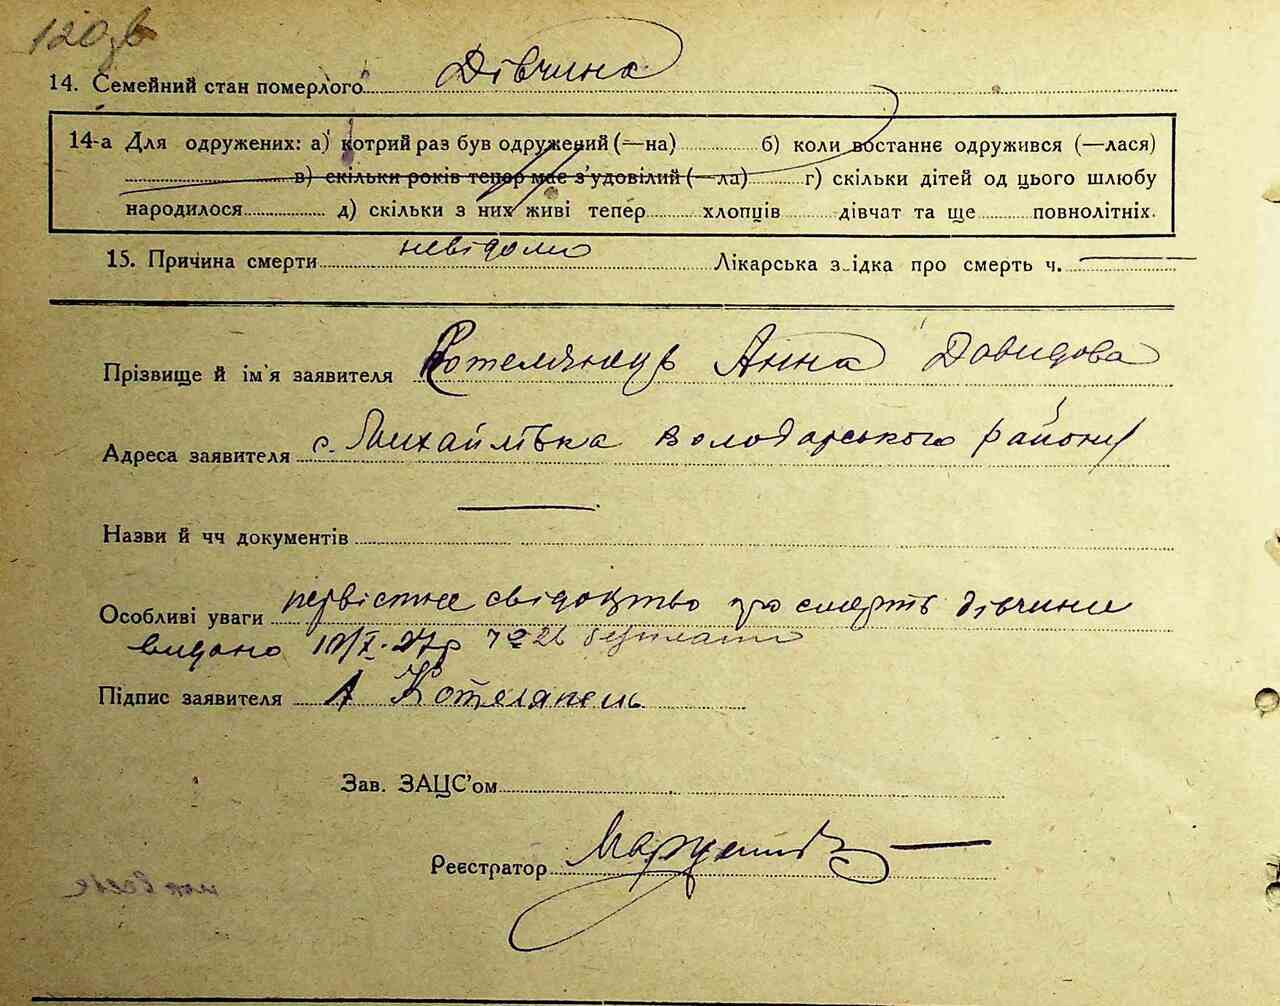 120зв
14. Семейний стан померлого Дівчина
14-а Для одружених: а) котрий раз був одружений (—на) б) коли востаннє одружився (—лася)
в) скільки років тепер має з'удовілий (—ла) г) скільки дітей од цього шлюбу
народилося д) скільки з них живі тепер хлопців дівчат та ще повнолітніх.
15. Причина смерти невідомо Лікарська з ідка про смерть ч. —
Прізвище й ім'я заявителя Котелянець Анна Давидова
Адреса заявителя с. Михайлівка Володарського району
Назви й чч документів —
Особливі уваги первістне свідоцтво про смерть дівчини
видано
Підпис заявителя А Котелянець
Зав. ЗАЦС'ом
Реєстратор